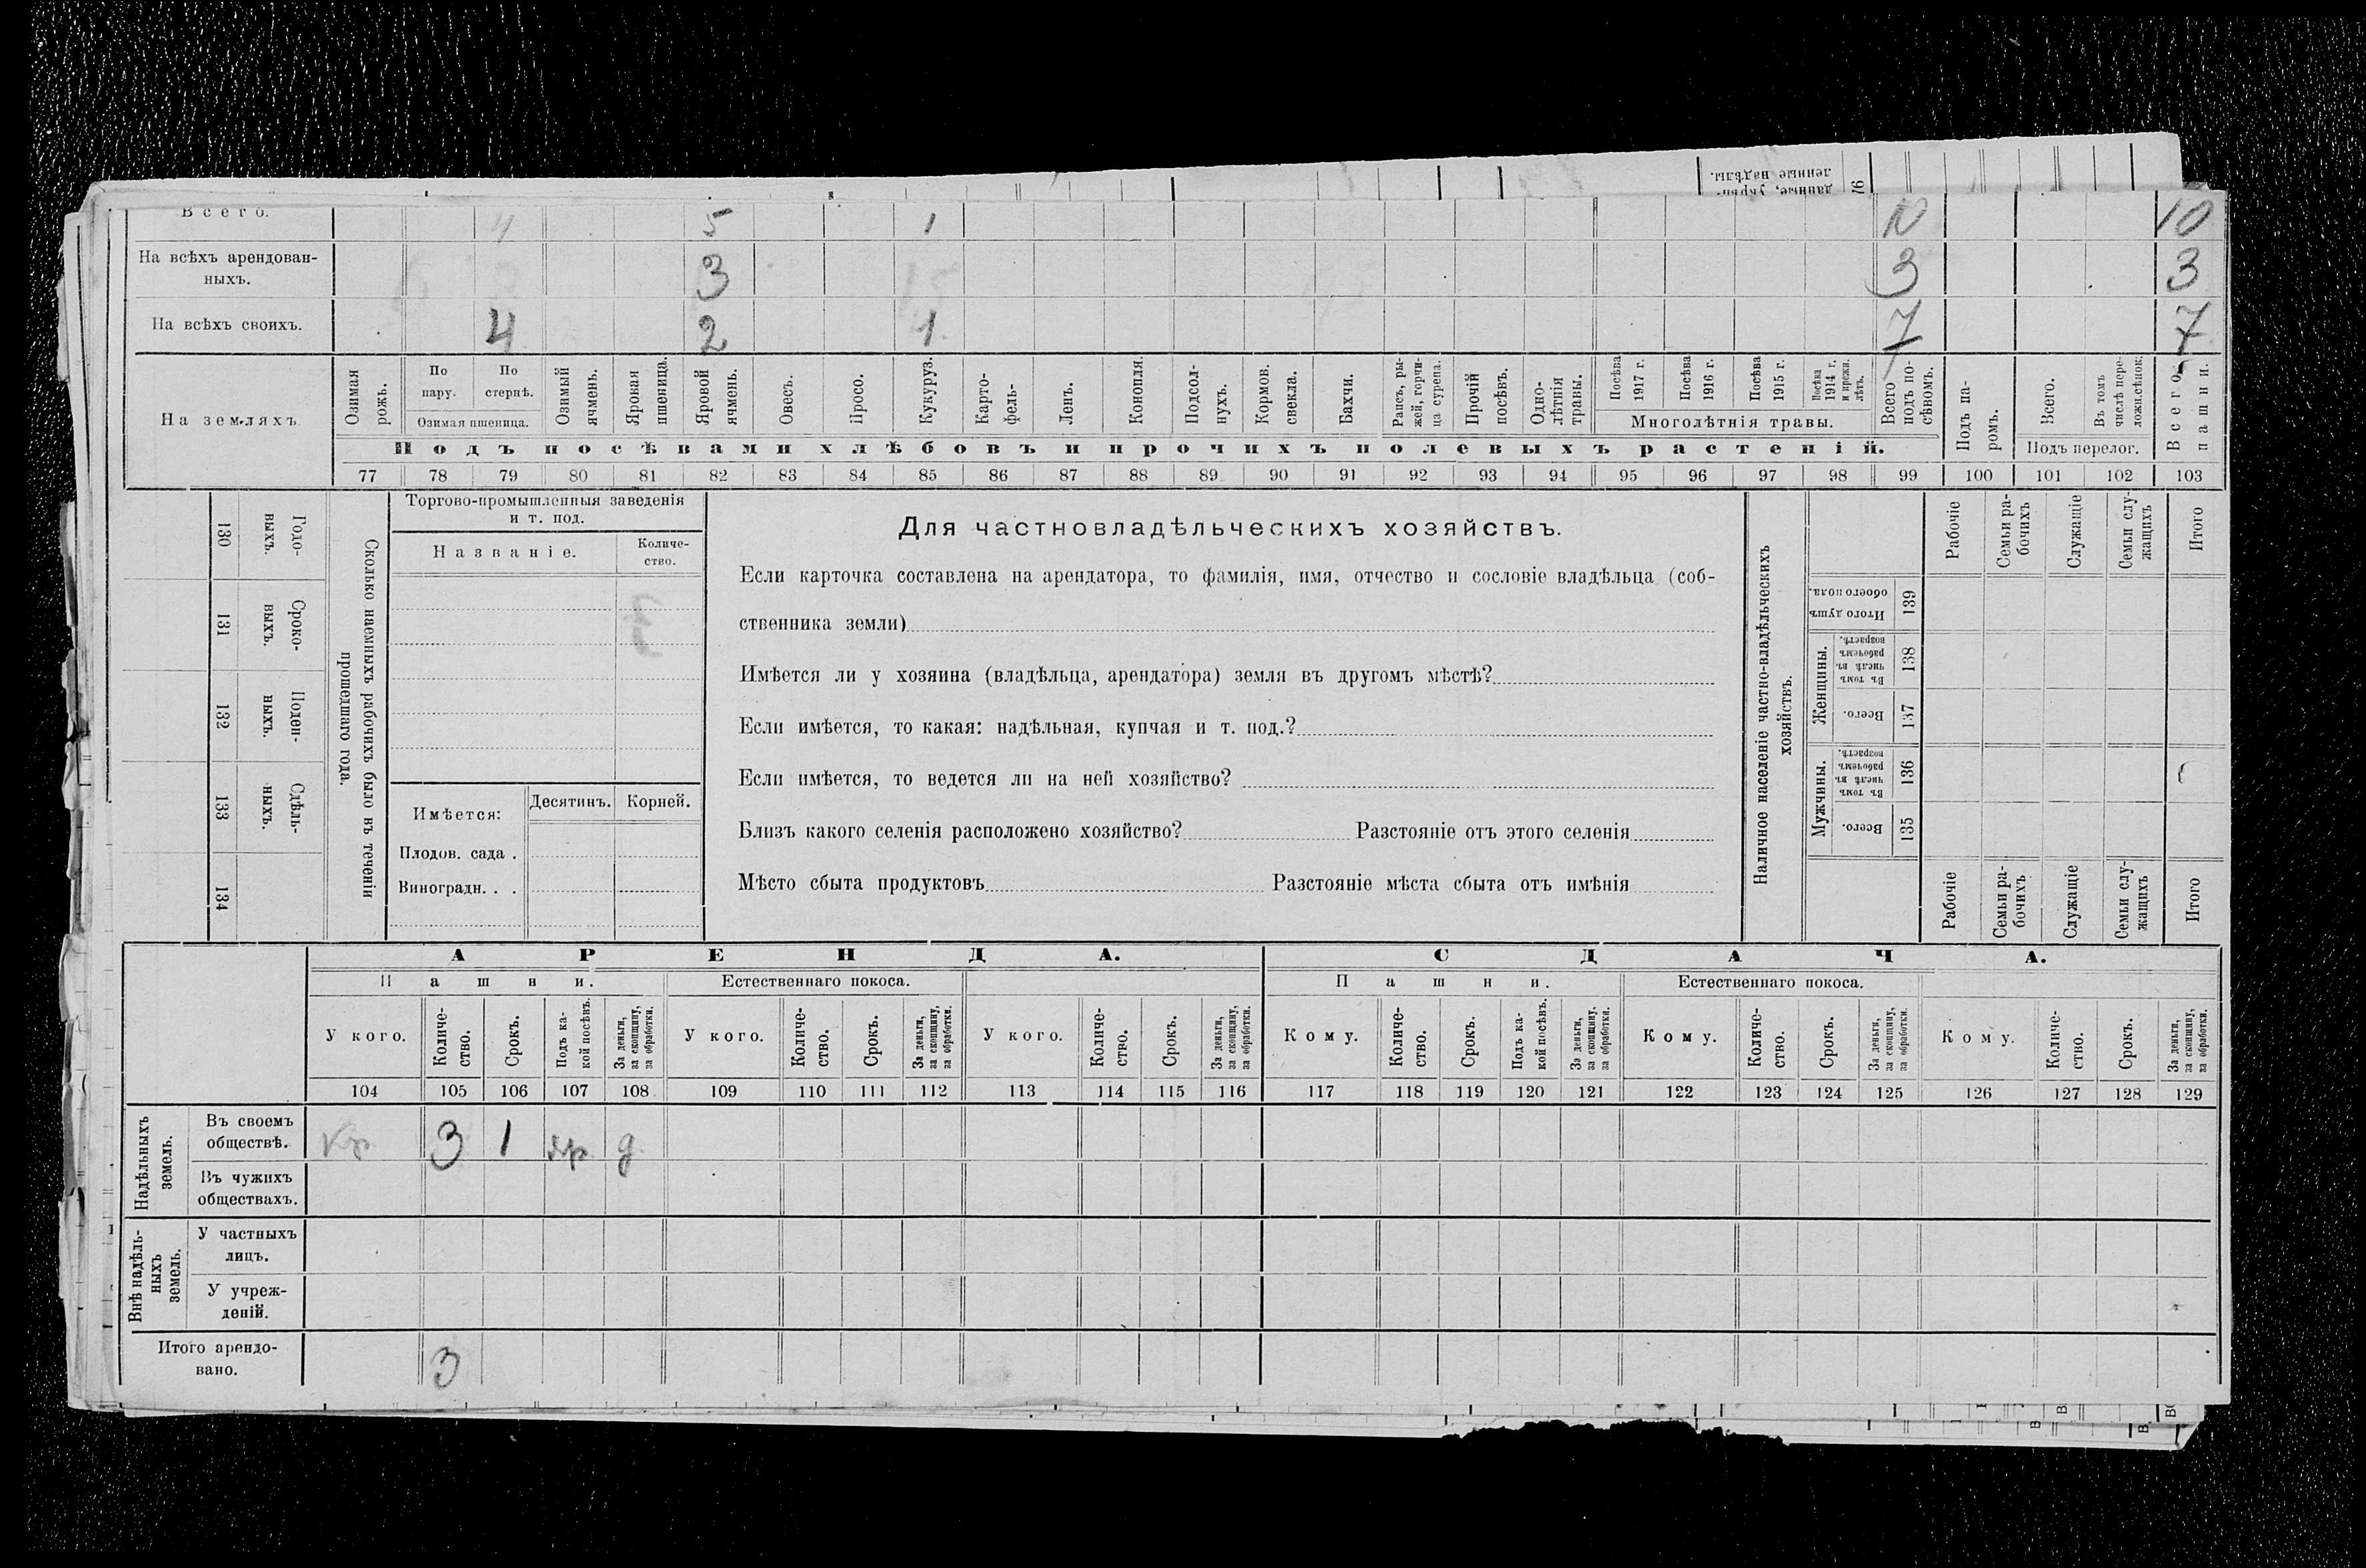 денные надѣлы.
данные, укрѣп-
76
Всего. 4 5 1 10 10
На всѣхъ арендован-
ныхъ. 3 3 3
На всѣхъ своихъ. 4 2 1 7 7
На земляхъ.
Озимая рожь.
По пару.
По стернѣ.
Озимая пшеница.
Озимый ячмень.
Яровая пшеница.
Яровой ячмень.
Овесъ.
Просо.
Кукуруз.
Карто-
фель-
Ленъ.
Конопля.
Подсол-
нухъ.
Кормов.
свекла.
Бахчи.
Рапсъ, ры-
жей, горчи-
ца сурепа.
Прочій
посѣвъ.
Одно-
лѣтнія
травы.
Посѣва
1917 г.
Посѣва
1916 г.
Посѣва
1915 г.
Посѣва
1914 г.
и прежн.
лѣтъ.
Многолѣтнія травы.
Всего
подъ по-
сѣвомъ.
Подъ па-
ромъ.
Всего.
Въ томъ
числѣ пере-
ложн.сѣнок.
Подъ перелог.
Всего
пашни.
Подъ посѣвами хлѣбовъ и прочихъ полевыхъ растеній.
77 78 79 80 81 82 83 84 85 86 87 88 89 90 91 92 93 94 95 96 97 98 99 100 101 102 103
Сколько наемныхъ рабочихъ было въ теченіи
прошедшаго года.
Годо-
выхъ.
130
Сроко-
выхъ.
131
Поден-
ныхъ.
132
Сдѣль-
ныхъ.
133
134
Торгово-промышленныя заведенія
и т. под.
Названіе.
Количе-
ство.
Имѣется: Десятинъ. Корней.
Плодов. сада .
Виноградн. . .
Для частновладѣльческихъ хозяйствъ.
Если карточка составлена на арендатора, то фамилія, имя, отчество и сословіе владѣльца (соб-
ственника земли)
Имѣется ли у хозяина (владѣльца, арендатора) земля въ другомъ мѣстѣ?
Если имѣется, то какая: надѣльная, купчая и т. под.?
Если имѣется, то ведется ли на ней хозяйство?
Близъ какого селенія расположено хозяйство? Разстояніе отъ этого селенія
Мѣсто сбыта продуктовъ Разстояніе мѣста сбыта отъ имѣнія
Наличное населеніе частно-владѣльческихъ
хозяйствъ.
Рабочіе
Семьи ра-
бочихъ
Служащіе
Семьи слу-
жащихъ
Итого
Итого душъ
обоего пола.
139
Женщины.
Въ томъ
числѣ въ
рабочемъ
возрастѣ.
138
Всего.
137
Мужчины.
Въ томъ
числѣ въ
рабочемъ
возрастѣ.
136
Всего.
135
Рабочіе
Семьи ра-
бочихъ
Служащіе
Семьи слу-
жащихъ
Итого
АРЕНДА. СДАЧА.
Пашни. Естественнаго покоса. Пашни. Естественнаго покоса.
У кого.
Количе-
ство.
Срокъ.
Подъ ка-
кой посѣвъ.
За деньги,
за скопщину,
за обработки.
У кого.
Количе-
ство.
Срокъ.
За деньги,
за скопщину,
за обработки.
У кого.
Количе-
ство.
Срокъ.
За деньги,
за скопщину,
за обработки.
Кому.
Количе-
ство.
Срокъ.
Подъ ка-
кой посѣвъ.
За деньги,
за скопщину,
за обработки.
Кому.
Количе-
ство.
Срокъ.
За деньги,
за скопщину,
за обработки.
Кому.
Количе-
ство.
Срокъ.
За деньги,
за скопщину,
за обработки.
104 105 106 107 108 109 110 111 112 113 114 115 116 117 118 119 120 121 122 123 124 125 126 127 128 129
Надѣльныхъ
земель.
Въ своемъ
обществѣ. кр 3 1 яр д
Въ чужихъ
обществахъ.
Внѣ надѣль-
ныхъ
земель.
У частныхъ
лицъ.
У учреж-
деній.
Итого арендо-
вано. 3